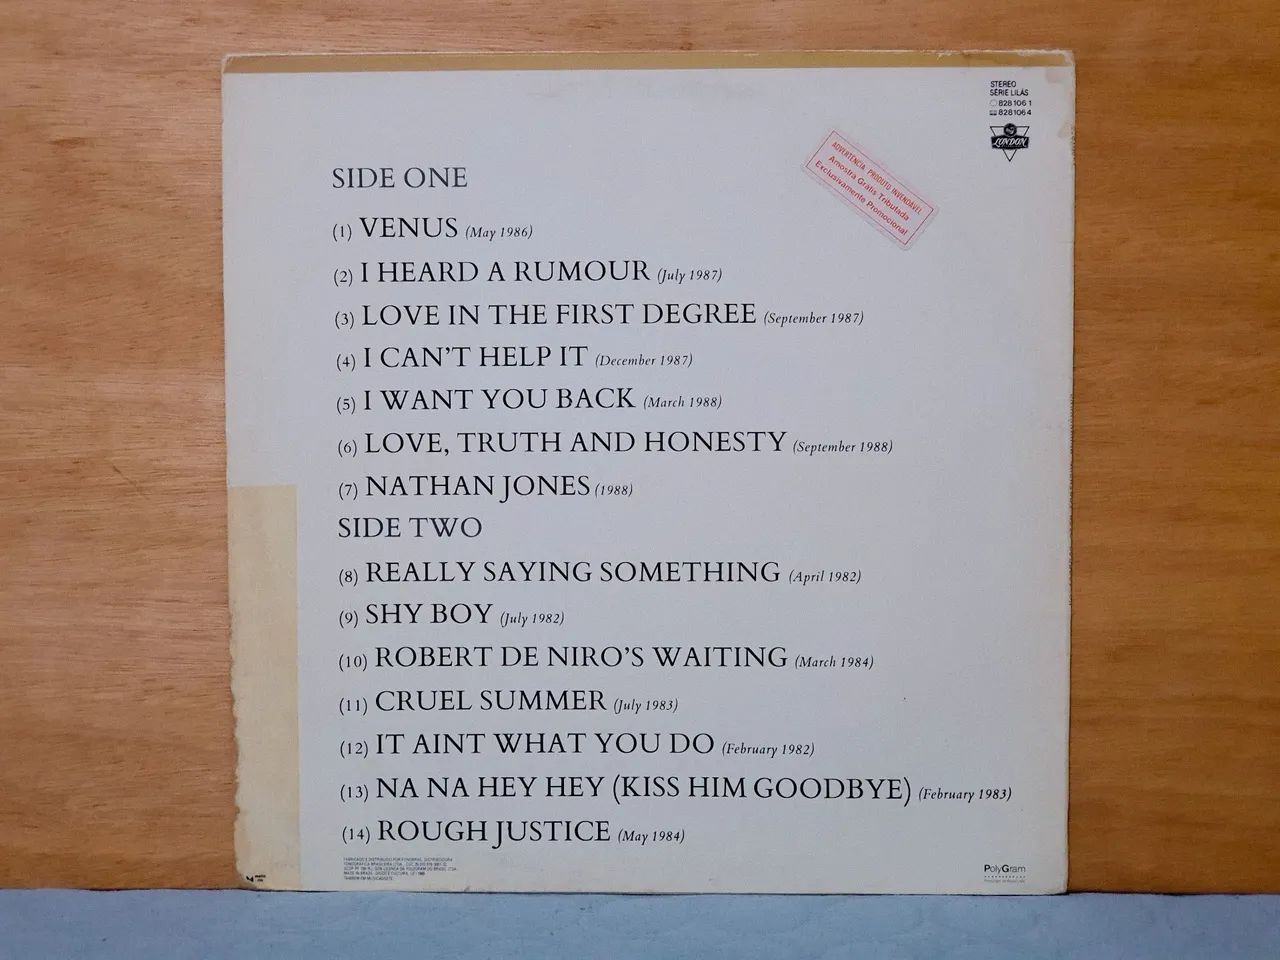 STEREO
SÉRIE LILÁS
828 106 1
828 106 4
LONDON
ADVERTÊNCIA PRODUTO INVENDÁVEL
Amostra Grátis Tributada
Exclusivamente Promocional
SIDE ONE
(1) VENUS (May 1986)
(2) I HEARD A RUMOUR (July 1987)
(3) LOVE IN THE FIRST DEGREE (September 1987)
(4) I CAN'T HELP IT (December 1987)
(5) I WANT YOU BACK (March 1988)
(6) LOVE, TRUTH AND HONESTY (September 1988)
(7) NATHAN JONES (1988)
SIDE TWO
(8) REALLY SAYING SOMETHING (April 1982)
(9) SHY BOY (July 1982)
(10) ROBERT DE NIRO'S WAITING (March 1984)
(11) CRUEL SUMMER (July 1983)
(12) IT AINT WHAT YOU DO (February 1982)
(13) NA NA HEY HEY (KISS HIM GOODBYE) (February 1983)
(14) ROUGH JUSTICE (May 1984)
PolyGram